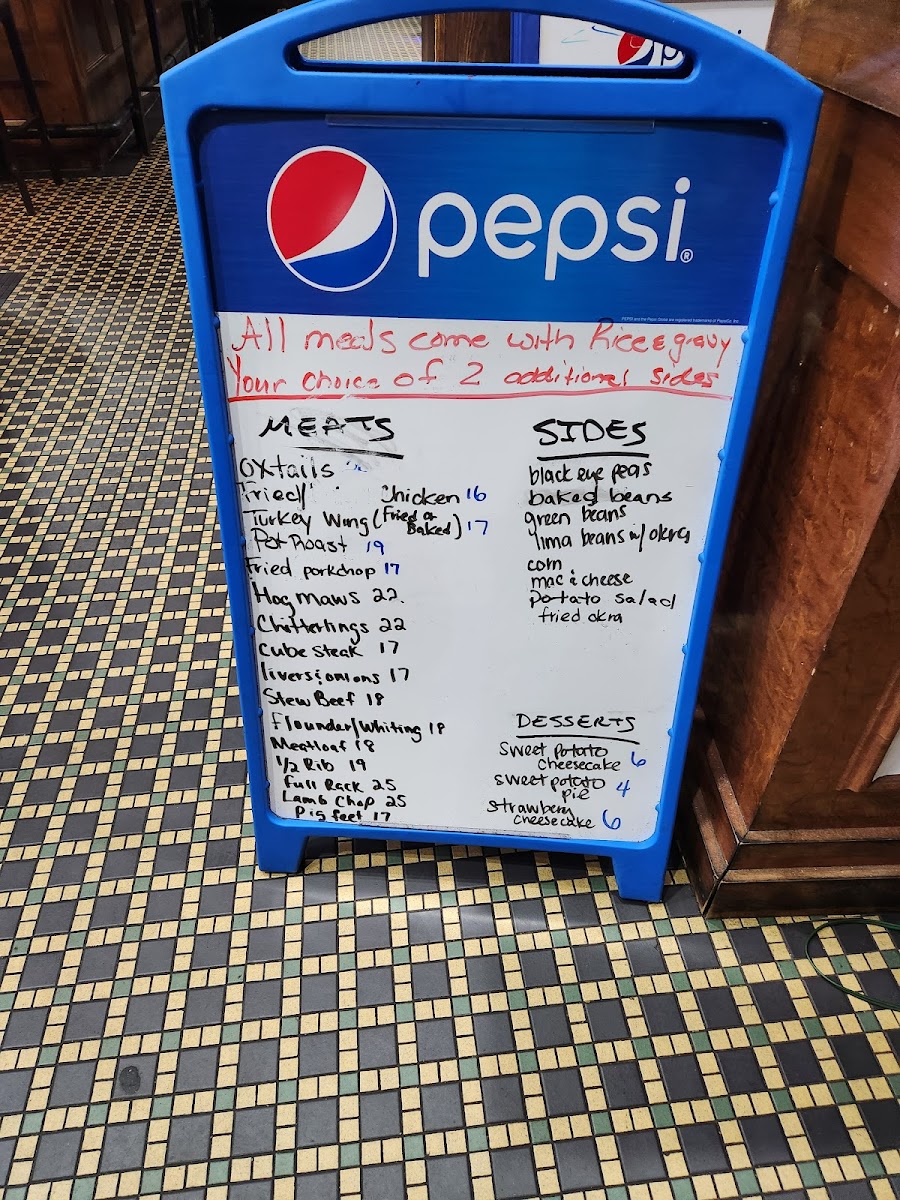 pepsi®
All meals come with Rice & gravy
Your choice of 2 additional sides
MEATS
Oxtails
Fried/ Chicken 16
Turkey Wing (Fried or Baked) 17
Pot Roast 19
Fried porkchop 17
Hog maws 22
Chitterlings 22
cube steak 17
livers & onions 17
Stew Beef 18
Flounder/Whiting 18
Meatloaf 18
1/2 Rib 19
full Rack 25
Lamb Chop 25
Pig feet 17
SIDES
black eye peas
baked beans
green beans
lima beans w/ okra
corn
mac & cheese
potato salad
fried okra
DESSERTS
Sweet Potato
cheesecake 6
sweet potato
pie 4
Strawberry
cheesecake 6